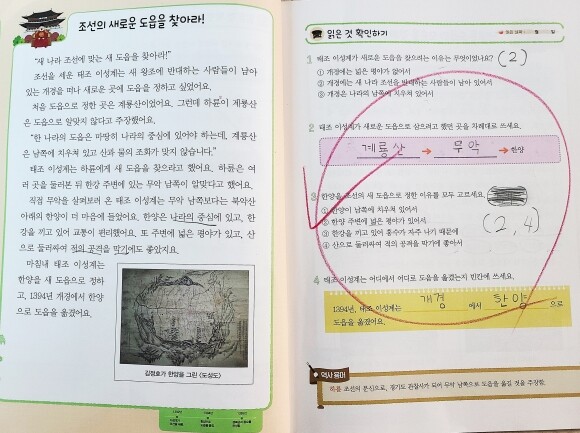 조선의 새로운 도읍을 찾아라!
"새 나라 조선에 맞는 새 도읍을 찾아라!"
조선을 세운 태조 이성계는 새 왕조에 반대하는 사람들이 남아
있는 개경을 떠나 새로운 곳에 도읍을 정하고 싶었어요.
처음 도읍으로 정한 곳은 계룡산이었어요. 그런데 하륜이 계룡산
은 도읍으로 알맞지 않다고 주장했어요.
"한 나라의 도읍은 마땅히 나라의 중심에 있어야 하는데, 계룡산
은 남쪽에 치우쳐 있고 산과 물의 조화가 맞지 않습니다."
태조 이성계는 하륜에게 새 도읍을 찾으라고 했어요. 하륜은 여
러 곳을 둘러본 뒤 한강 주변에 있는 무악 남쪽이 알맞다고 했어요.
직접 무악을 살펴보러 온 태조 이성계는 무악 남쪽보다는 북악산
아래의 한양이 더 마음에 들었어요. 한양은 나라의 중심에 있고, 한
강을 끼고 있어 교통이 편리했어요. 또 주변에 넓은 평야가 있고, 산
으로 둘러싸여 적의 공격을 막기에도 좋았지요.
마침내 태조 이성계는
한양을 새 도읍으로 정하
고, 1394년 개경에서 한양
으로 도읍을 옮겼어요.
김정호가 한양을 그린 <도성도>
읽은 것 확인하기
1 태조 이성계가 새로운 도읍을 찾으려는 이유는 무엇이었나요? (2)
① 개경에는 넓은 평야가 없어서
② 개경에는 새 나라 조선을 반대하는 사람들이 남아 있어서
③ 개경은 나라의 남쪽에 치우쳐 있어서
2 태조 이성계가 새로운 도읍으로 삼으려고 했던 곳을 차례대로 쓰세요.
계룡산 → 무악 → 한양
3 한양을 조선의 새 도읍으로 정한 이유를 모두 고르세요.
① 한양이 남쪽에 치우쳐 있어서
② 한양 주변에 넓은 평야가 있어서
(2, 4)
③ 한강을 끼고 있어 홍수가 자주 나기 때문에
④ 산으로 둘러싸여 적의 공격을 막기에 좋아서
4 태조 이성계는 어디에서 어디로 도읍을 옮겼는지 빈칸에 쓰세요.
1394년, 태조 이성계는 개경 에서 한양 으로
도읍을 옮겼어요.
역사 용어
하륜 조선의 문신으로, 경기도 관찰사가 되어 무악 남쪽으로 도읍을 옮길 것을 주장함.